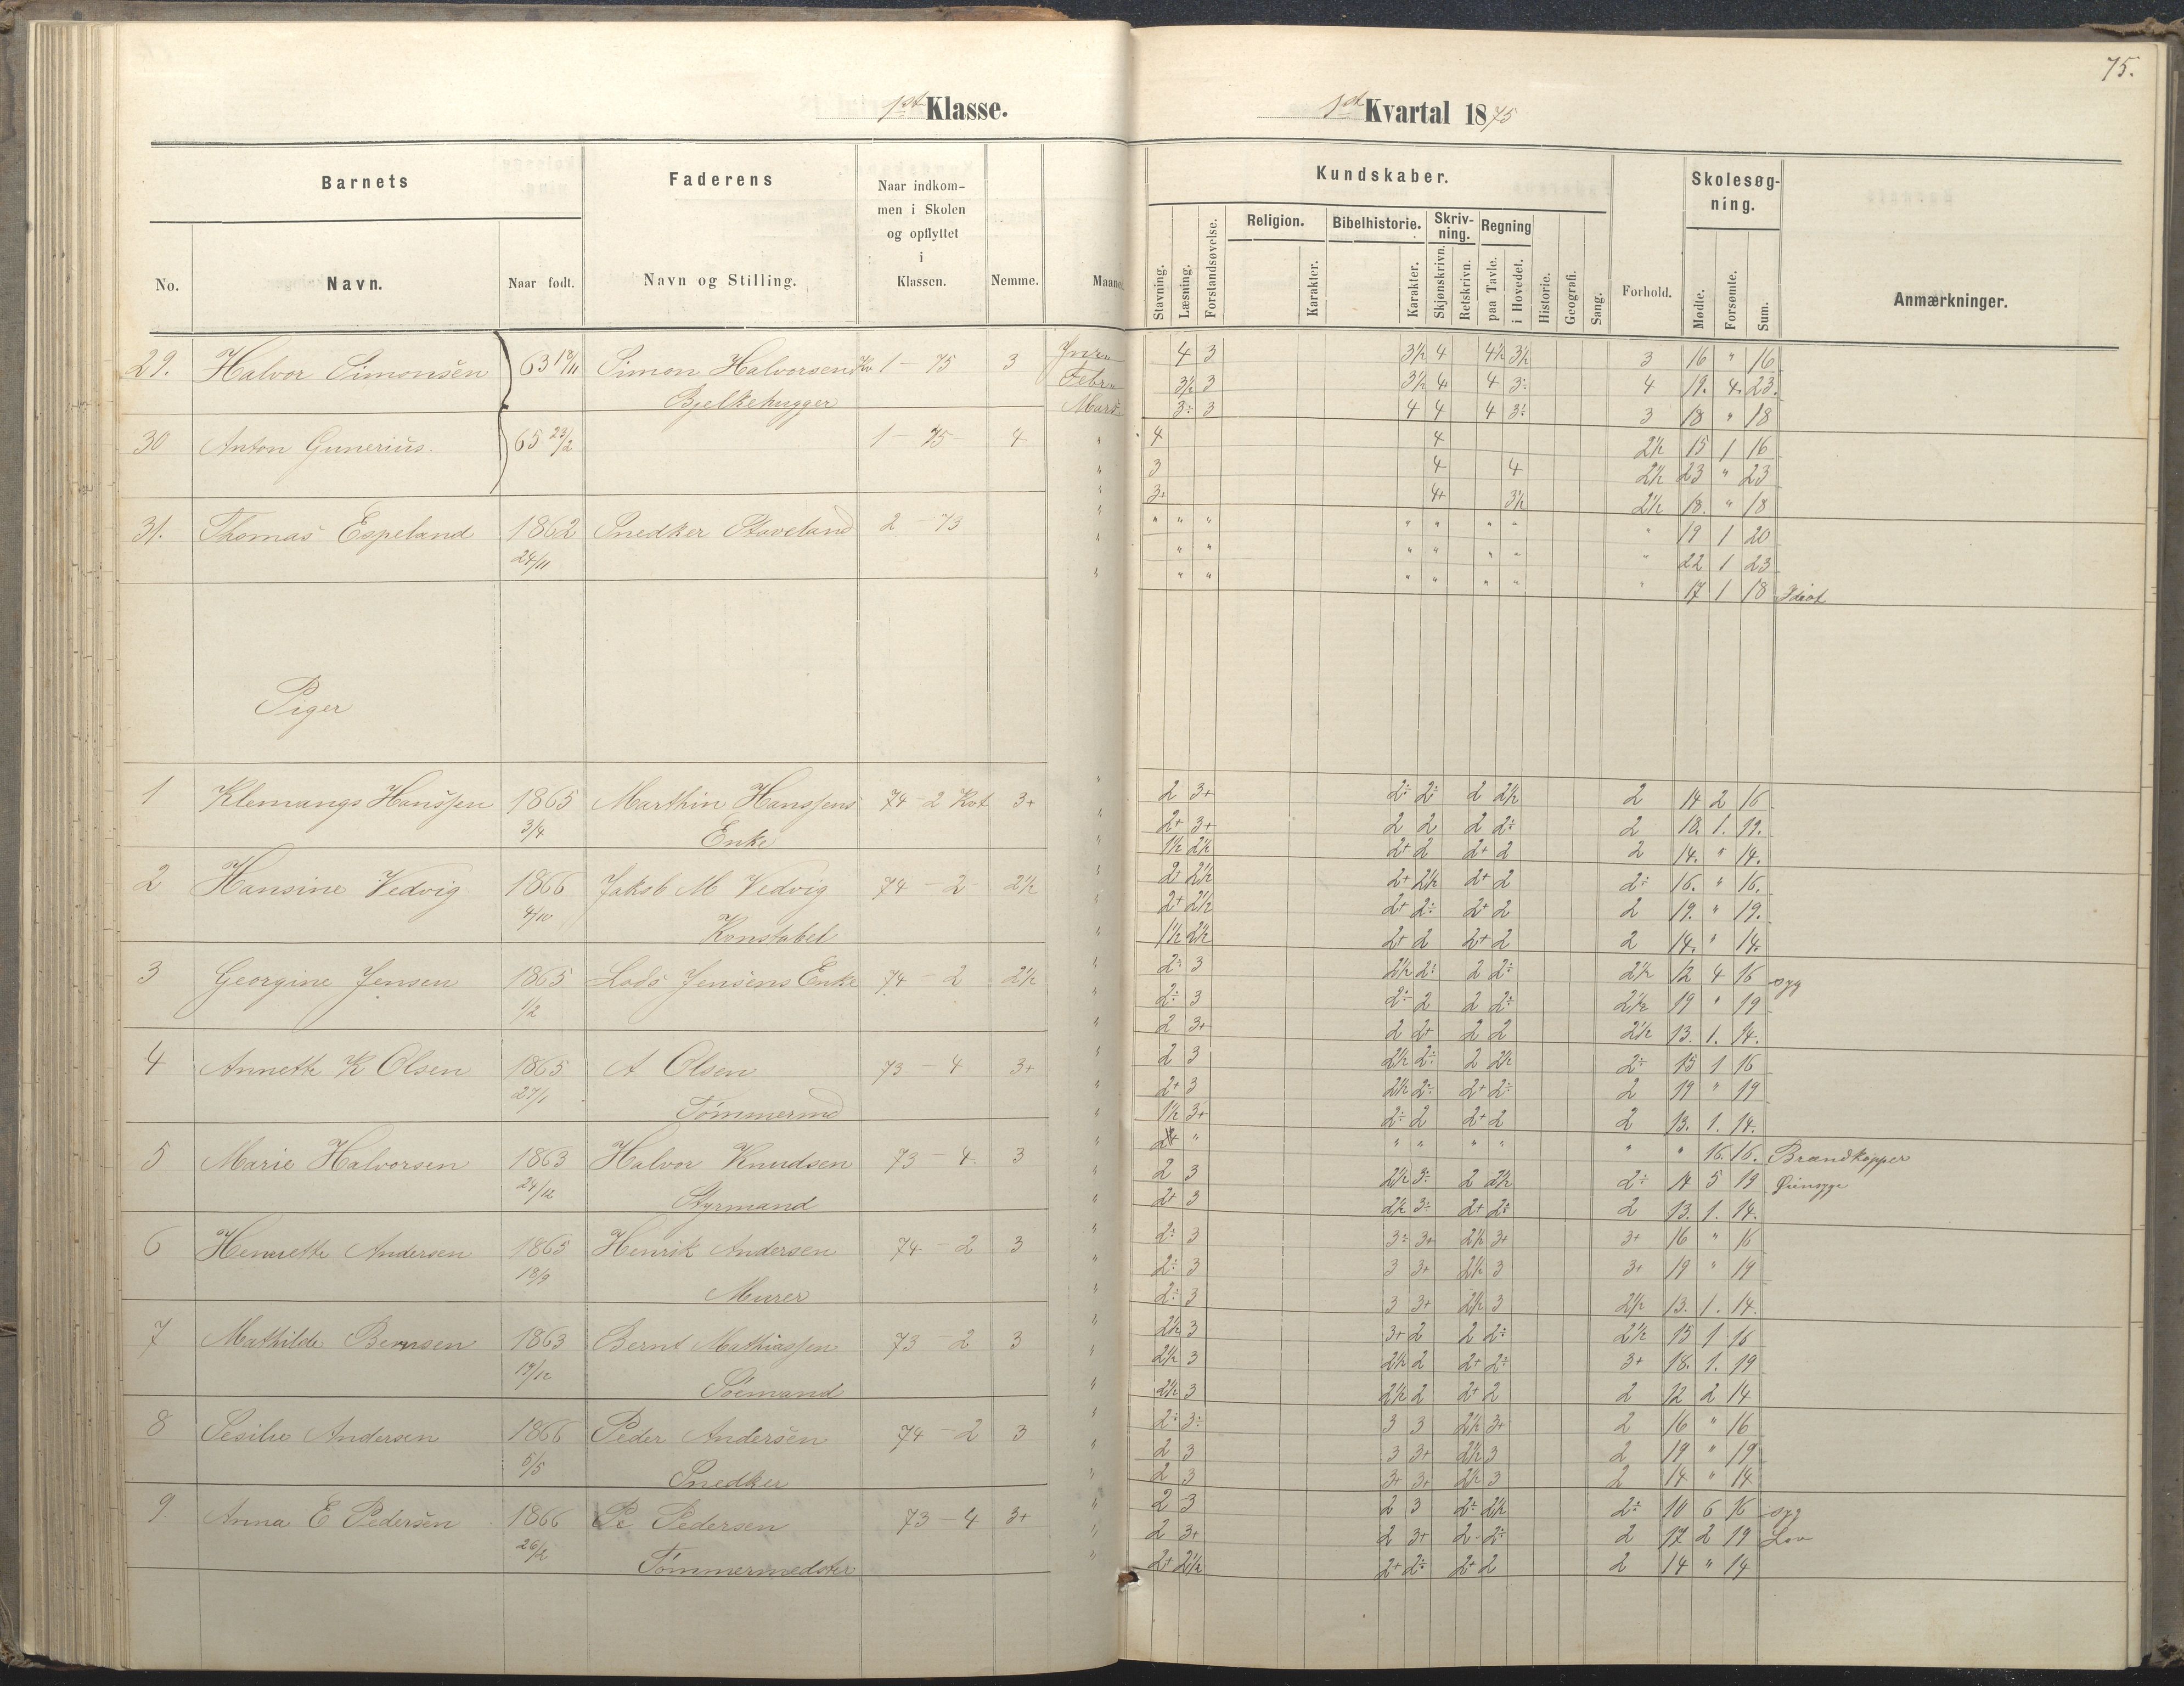 75.
1ste Klasse.
1ste Kvartal 1875
Barnets
Faderens
Naar indkom-
men i Skolen
og opflyttet
i
Klassen.
Nemme.
Maaned
No.
Navn.
Naar født.
Navn og Stilling.
Kundskaber.
Skolesøg-
ning.
Religion.
Bibelhistorie.
Skriv-
ning.
Regning
Stavning.
Læsning.
Forstandsøvelse.
Karakter.
Karakter.
Skjønskrivn.
Retskrivn.
paa Tavle.
i Hovedet.
Historie.
Geografi.
Sang.
Forhold.
Mødte.
Forsømte.
Sum.
Anmærkninger.
29. Halvor Simonsen 63 18/11 Simon Halvorsen Kv 1 - 75 3 4 3 3½ 4 4½ 3½ 3 16 " 16
Bjelkehugger Febru 3½ 3 3½ 4 4 3÷ 4 19. 4. 23.
Marts 3÷ 3 4 4 4 3÷ 3 18 " 18
30 Anton Gunerius. 65 23/2 1 - 75 4 " 4 4 2½ 15 1 16
" 3 4 4 2½ 23 " 23
" 3+ 4+ 3½ 2½ 18. " 18
31. Thomas Espeland 1862 Snedker Staveland 2 - 73 " " " " " " " " " 19 1 20
24/11 " " " " " " " " 22 1 23
" " " " " " " " 17 1 18 Idiot
Piger
1 Klemangs Hanssen 1865 Marthin Hanssens 74 - 2 Kvt 3+ " 2 3+ 2÷ 2÷ 2 2½ 2 14 2 16
3/4 Enke " 2+ 3+ 2 2 2 2÷ 2 18. 1. 19.
" 1½ 2½ 2+ 2 2+ 2 2 14. " 14.
2 Hansine Vedvig 1866 Jakob M Vedvig 74 - 2 2½ " 2+ 2½ 2+ 2½ 2+ 2 2÷ 16. " 16.
4/10 Konstabel " 2+ 2½ 2+ 2÷ 2+ 2 2 19. " 19.
" 1½ 2½ 2+ 2 2+ 2 2 14. " 14.
3 Georgine Jensen 1865 Lods Jensens Enke 74 - 2 2½ " 2÷ 3 2½ 2÷ 2 2÷ 2½ 12 4 16 syg
1/2 " 2÷ 3 2÷ 2 2 2÷ 2½ 19 " 19
" 2 3+ 2 2+ 2 2 2½ 13. 1. 14.
4 Annette K Olsen 1865 A Olsen 73 - 4 3+ " 2 3 2½ 2÷ 2 2½ 2÷ 15 1 16
27/1 Tømmermd " 2+ 3 2½ 2÷ 2+ 2÷ 2 19 " 19
" 1½ 3+ 2÷ 2 2+ 2 2 13. 1. 14.
5 Marie Halvorsen 1863 Halvor Knudsen 73 - 4. 3 " " " " " " " " 16. 16. Brandkopper
24/12 Styrmand " 2 3 2½ 3÷ 2 2½ 2÷ 14 5 19 Øiensyge
" 2+ 3 2½ 3÷ 2+ 2÷ 2 13. 1. 14.
6 Henriette Andersen 1865 Henrik Andersen 74 - 2 3 " 2÷ 3 3÷ 3+ 2½ 3+ 3+ 16 " 16
18/9 Murer " 2÷ 3 3 3+ 2½ 3 3+ 19 " 19
" 2÷ 3 3 3+ 2½ 3 2½ 13. 1. 14.
7 Mathilde Bernsen 1863 Bernt Mathiassen 73 - 2 3 " 2½ 3 3+ 2 2 2÷ 2½ 15 1 16
19/12 Søemand " 2½ 3 2½ 2 2+ 2÷ 3+ 18. 1. 19
" 2½ 3 2½ 2 2+ 2 2 12 2 14
8 Sesilie Andersen 1866 Peder Andersen 74 - 2 3 " 2÷ 3÷ 3 3 2½ 3+ 2 16 " 16
5/5 Snedker " 2 3 3 3+ 2½ 3 2 19 " 19
" 2 3 3+ 3+ 2½ 3 2 14 " 14
9 Anna E Pedersen 1866 Pe Pedersen 73 - 4 3+ " 2 3 2 3 2÷ 2½ 2÷ 10 6 16 syg
26/2 Tømmermedster " 2 3+ 2 3+ 2- 2÷ 2 17 2 19 Lov
" 2+ 2½ 2+ 2÷ 2+ 2 2 14 " 14